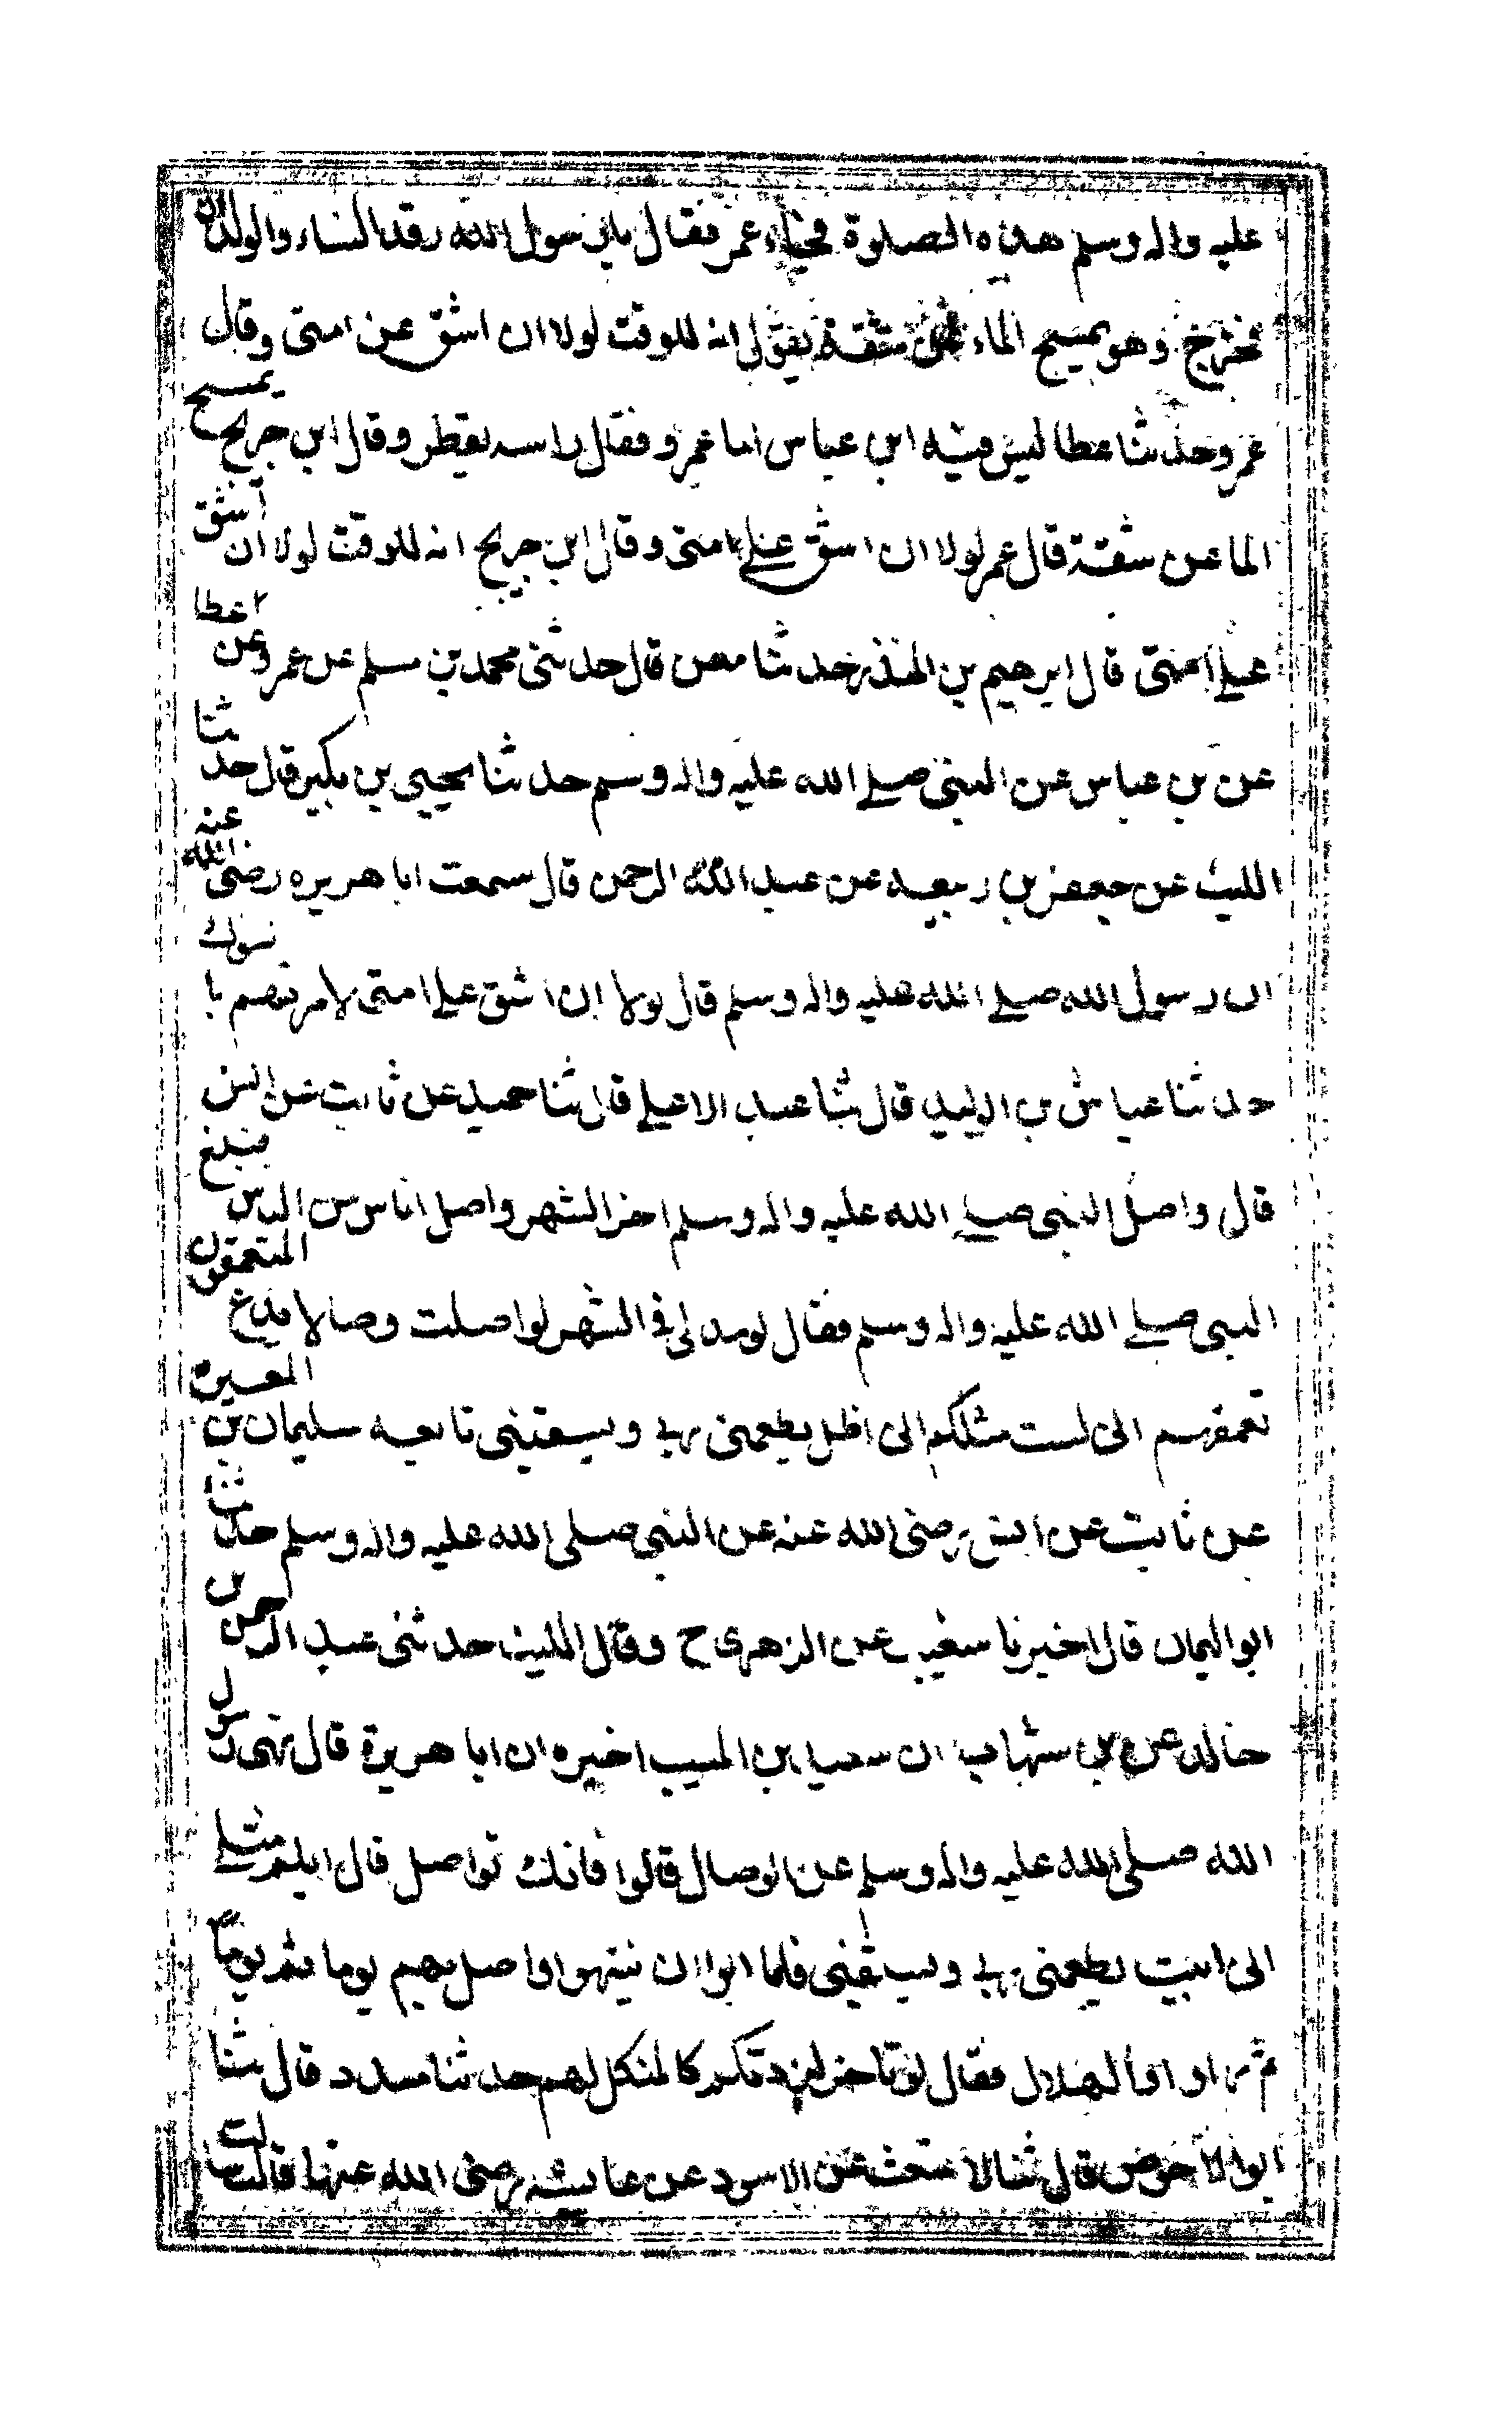 عليه واله وسلم هذه الصلوة فجاء عمر فقال يا رسول الله رقد النساء والولدان
فخرج وهو يمسح الماء عن شقة يقول انه للوقت لولا ان اشق عن امتى وقال
عمرو حدثنا عطا ليس فيه ابن عباس اما عمرو فقال راسه يقطر وقال ابن جريج يمسح
الما عن شقة قال عمر لولا ان اشق على امتى وقال ابن جريج انه للوقت لولا ان اشق
على امتى قال ابرهيم بن المنذر حدثنا معن قال حدثنى محمد بن مسلم عن عمرو عن عطا
عن بن عباس عن النبى صلى الله عليه واله وسلم حدثنا يحيى بن بكير قال حدثنا
الليث عن جعفر بن ربيعه عن عبد الرحمن قال سمعت ابا هريره رضى الله عنه
ان رسول الله صلى الله عليه واله وسلم قال لولا ان اشق على امتى لامرتهم با لسواك
حدثنا عياش بن الوليد قال ثنا عبد الاعلى قال ثنا حميد عن ثابت عن انس
قال واصل النبى صلى الله عليه واله وسلم اخر الشهر واصل اناس من الناس فبلغ
النبى صلى الله عليه واله وسلم فقال لو مد لى فى الشهر لواصلت وصالا يدع المتعمقون
تعمقهم انى لست مثلكم انى اظل يطعمنى ربى ويسقينى تابعه سليمان بن المغيره
عن ثابت عن انس رضى الله عنه عن النبى صلى الله عليه واله وسلم حدثنا
ابو اليمان قال اخبرنا شعيب عن الزهرى ح وقال الليث حدثنى عبد الرحمن بن
خالد عن بن شهاب ان سعيد بن المسيب اخبره ان ابا هريرة قال نهى رسول
الله صلى الله عليه واله وسلم عن الوصال قالوا فانك تواصل قال ايكم مثلى
انى ابيت يطعمنى ربى ويسقينى فلما ابوا ان ينتهوا واصل بهم يوما ثم يوما
ثم راوا الهلال فقال لو تاخر لزدتكم كالمنكل لهم حدثنا مسدد قال ثنا
ابو الاحوص قال ثنا الاشعث عن الاسود عن عايشه رضى الله عنها قالت سالت